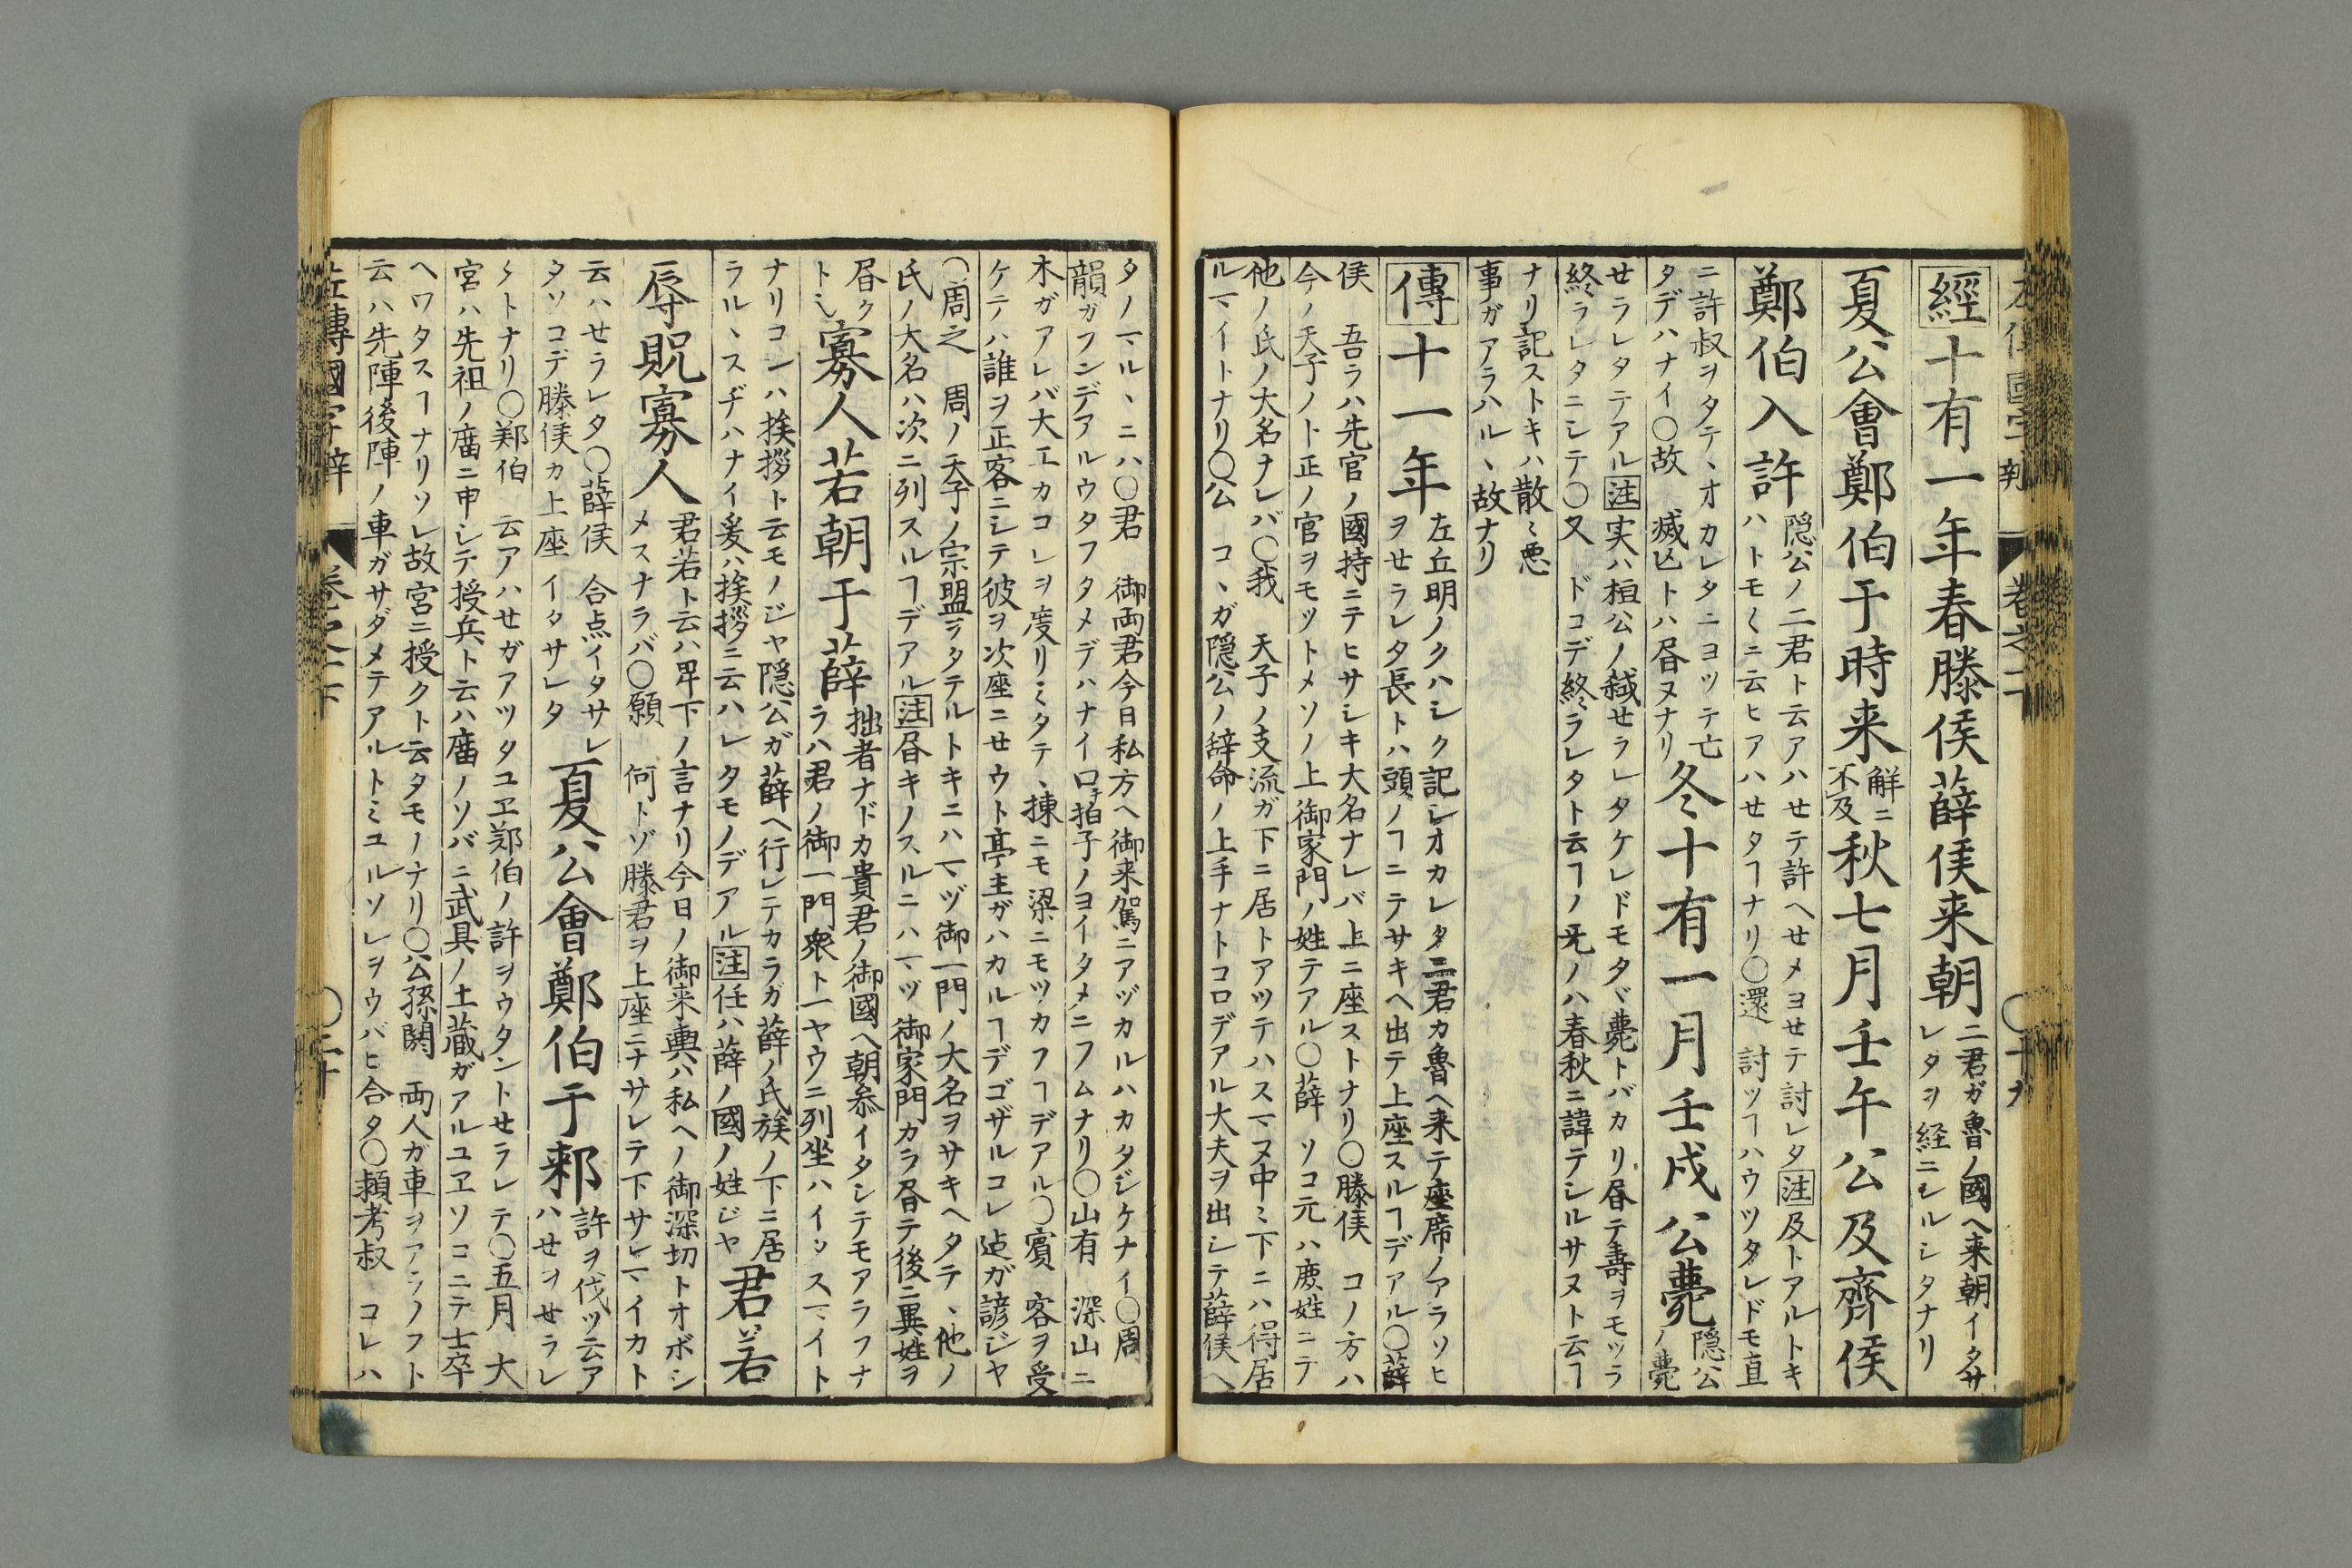 經十有一年春滕侯薛侯来朝二君ガ魯ノ國ヘ来朝イタサ
レタヲ経ニシルシタナリ
夏公會鄭伯于時来解ニ
不及秋七月壬午公及齊侯
鄭伯入許隠公ノ二君ト云アハセテ許ヘセメヨセテ討レタ注及トアルトキ
ハトモ〱ニ云ヒアハセタヿナリ〇還 討ツヿハウツタレドモ直
ニ許叔ヲタテヽオカレタニヨツテ亡
タデハナイ〇故 滅亡トハ昏ヌナリ冬十有一月壬戌公薨隠公
ノ薨
せラレタテアル注実ハ桓公ノ弑せラレタケレドモタヾ薨トバカリ昏テ壽ヲモツラ
終ラレタニシテ〇又 ドコデ終ラレタト云ヿノ旡ノハ春秋ニ諱テシルサヌト云ヿ
ナリ記ストキハ散〻悪
事ガアラハルヽ故ナリ
傳十一年左丘明ノクハシク記シオカレタ二君カ魯ヘ来テ座席ノアラソヒ
ヲせラレタ長トハ頭ノヿニテサキヘ出テ上座スルヿデアル〇薛
侯 吾ラハ先官ノ國持ニテヒサシキ大名ナレバ上ニ座ストナリ〇滕侯 コノ方ハ
今ノ天子ノト正ノ官ヲモツトメソノ上御家門ノ姓テアル〇薛 ソコ元ハ庶姓ニテ
他ノ氏ノ大名ナレバ〇我 天子ノ支流ガ下ニ居トアツテハスマヌ中〻下ニハ得居
ルマイトナリ〇公 コヽガ隠公ノ辞命ノ上手ナトコロデアル大夫ヲ出シテ薛侯ヘ
タノマルヽニハ〇君 御両君今日私方ヘ御来駕ニアヅカルハカタジケナイ〇周
韻ガフンデアルウタフタメデハナイ口拍子ノヨイタメニフムナリ〇山有 深山ニ
木ガアレバ大工カコレヲ度リミタテヽ棟ニモ梁ニモツカフヿデアル〇賓 客ヲ受
ケテハ誰ヲ正客ニシテ彼ヲ次座ニせウト亭主ガハカルヿデゴザルコレ迠ガ諺ジヤ
〇周之 周ノ天子ノ宗盟ヲタテルトキニハマヅ御一門ノ大名ヲサキヘタテヽ他ノ
氏ノ大名ハ次ニ列スルヿデアル注昏キノスルニハマヅ御家門カラ昏テ後ニ異姓ヲ
昏ク
トミ寡人若朝于薛拙者ナドカ貴君ノ御國ヘ朝叅イタシテモアラフナ
ラハ君ノ御一門衆ト一ヤウニ列坐ハイヽスマイト
ナリコレハ挨拶ト云モノジヤ隠公ガ薛ヘ行レテカラガ薛ノ氏族ノ下ニ居
ラルヽスヂハナイ爰ハ挨拶ニ云ハレタモノデアル注任ハ薛ノ國ノ姓ジヤ君若
辱貺寡人君若ト云ハ卑下ノ言ナリ今日ノ御来輿ハ私ヘノ御深切トオボシ
メスナラバ〇願 何トゾ滕君ヲ上座ニナサレテ下サレマイカト
云ハせラレタ〇薛侯 合点イタサレ
タソコデ滕侯カ上座イタサレタ夏公會鄭伯于郲許ヲ伐ツ云ア
ハせヲせラレ
タトナリ〇鄭伯 云アハせガアツタユヱ鄭伯ノ許ヲウタントせラレテ〇五月 大
宮ハ先祖ノ庿ニ申シテ授兵ト云ハ庿ノソバニ武具ノ土蔵ガアルユヱソコニテ士卒
ヘワタスヿナリソレ故宮ニ授クト云タモノナリ〇公孫閼 両人ガ車ヲアラソフト
云ハ先陣後陣ノ車ガサダメテアルトミユルソレヲウバヒ合タ〇頴考叔 コレハ